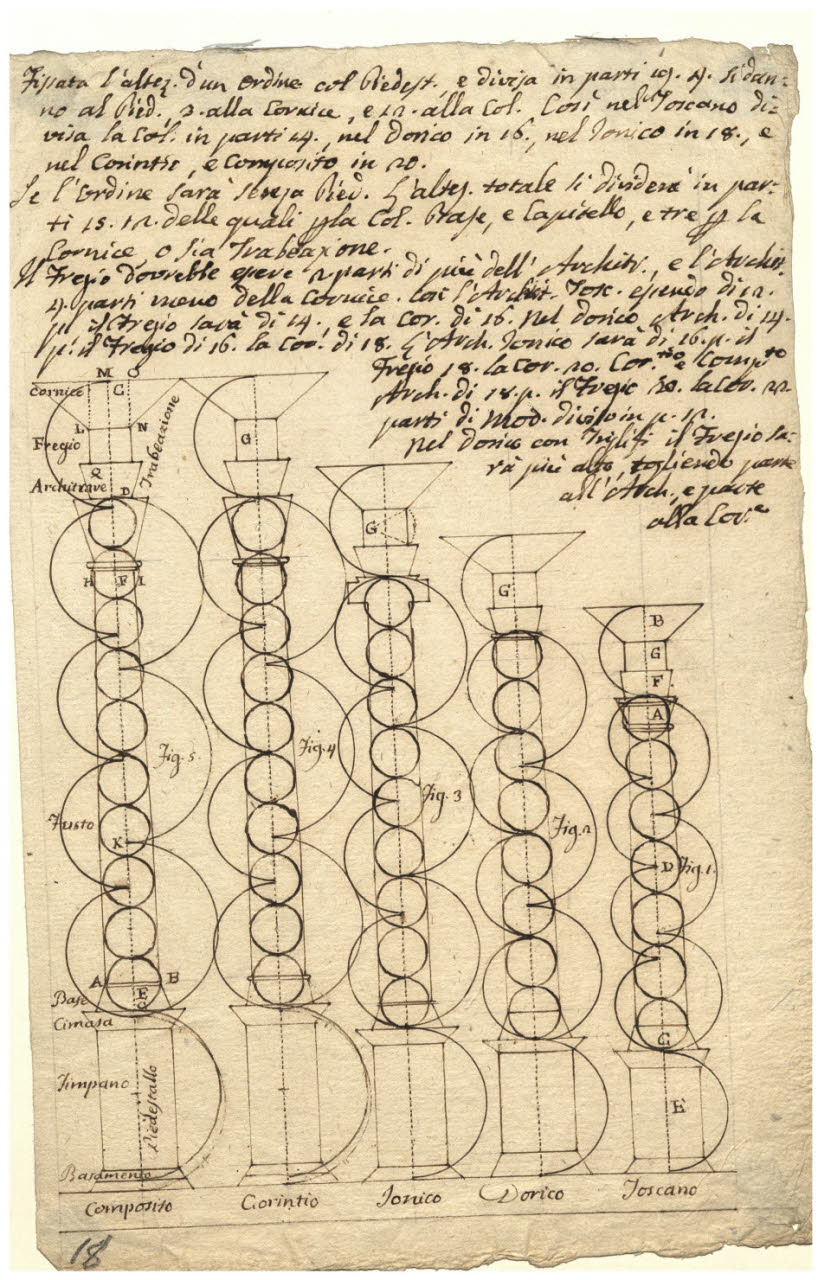 Fissata l'altez. d'un ordine col Piedest., e divisa in parti 19. 4. si dan-
no al Pied. 3. alla Cornice, e 12. alla Col. Così nel Toscano di-
visa la Col. in parti 14., nel Dorico in 16., nel Ionico in 18., e
nel Corintio, e Composito in 20.
Se l'Ordine sarà senza Pied. L'altez. totale si dividerà in par-
ti 15. 12. delle quali pla Col. Base, e Capitello, e tre p la
Cornice, o sia Trabeazione.
Il Fregio dovrebbe essere 2 parti di più dell'Archit., e l'Archit.
4. parti meno della Cornice. Così l'Archit. Tosc. essendo di 12.
p. il Fregio sarà di 14., e la Cor. di 16. Nel dorico Arch. di 14.
p. il Fregio di 16. la Cor. di 18. L'Arch. Ionico sarà di 16. p. il
Fregio 18. la Cor. 20. Cor.tio e Comp.to
Arch. di 18. p. il Fregio 30. la Cor. 22
parti di Mod. diviso in p. 12.
Nel Dorico con Triglifi il Fregio sa-
rà più alto, togliendo parte
all'Arch., e parte
alla Cor.e
M O
Cornice C
L N
Fregio
Trabeazione
G
Q
Architrave D
H F I
G
G
B
G
F
A
Fig. 5.
Fig. 4
Fig. 3
Fig. 2
Fusto
K
D Fig. 1.
A B
E
Base
Cimasa
G
Timpano
Piedestallo
E
Basamento
Composito Corintio Ionico Dorico Toscano
18